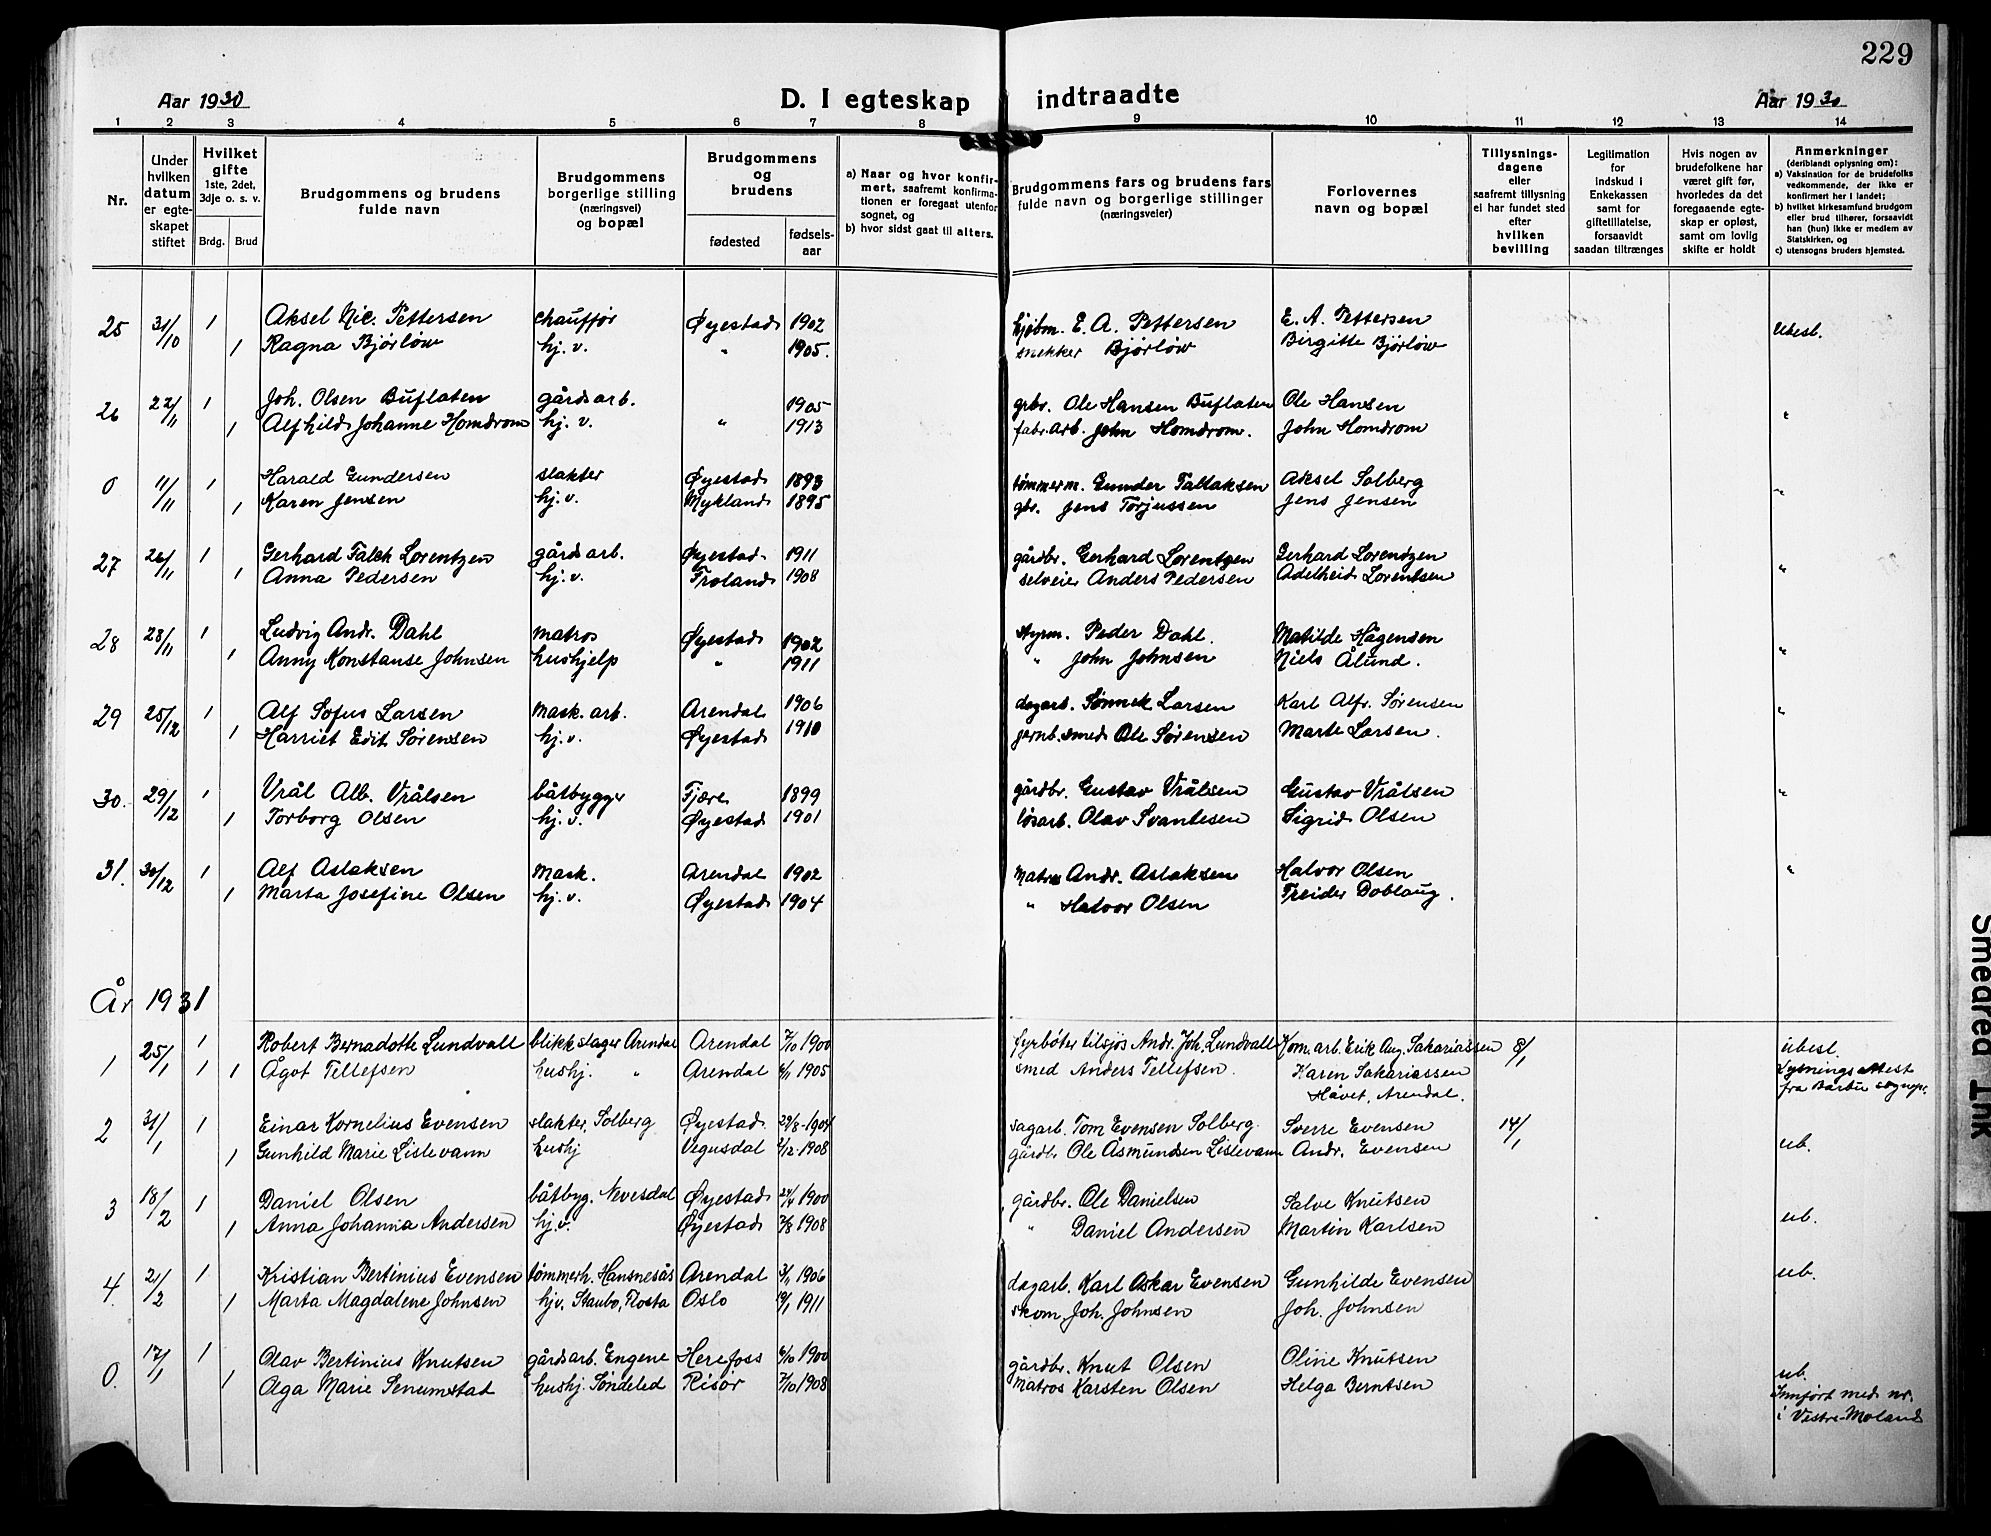 229
Aar 1930 D. I egteskap indtraadte Aar 1930
1 2 3 4 5 6 7 8 9 10 11 12 13 14
Nr.
Under hvilken datum er egteskapet stiftet
Hvilket gifte 1ste, 2det, 3dje o. s. v.
Brdg. Brud
Brudgommens og brudens fulde navn
Brudgommens borgerlige stilling (næringsvei) og bopæl
Brudgommens og brudens
fødested fødselsaar
a) Naar og hvor konfirmert, saafremt konfirmationen er foregaat utenfor sognet, og
b) hvor sidst gaat til alters.
Brudgommens fars og brudens fars fulde navn og borgerlige stillinger (næringsveier)
Forlovernes navn og bopæl
Tillysningsdagene eller saafremt tillysning ei har fundet sted efter hvilken bevilling
Legitimation for indskud i Enkekassen samt for giftetillatelse, forsaavidt saadan tiltrænges
Hvis nogen av brudefolkene har været gift før, hvorledes da det foregaaende egteskap er opløst, samt om lovlig skifte er holdt
Anmerkninger (deriblandt oplysning om):
a) Vaksination for de brudefolks vedkommende, der ikke er konfirmert her i landet;
b) hvilket kirkesamfund brudgom eller brud tilhører, forsaavidt han (hun) ikke er medlem av Statskirken, og
c) utensogns bruders hjemsted.
25 31/10 1 Aksel Nic. Pettersen chauffør Øyestad 1902 kjøbm. E. A. Pettersen E. A. Pettersen ubesl.
1 Ragna Bjørløw hj. v. " 1905. snekker Bjørløw Birgitte Bjørløw
26 22/11 1 Joh. Olsen Buflaten gårdsarb. 1905 grbr. Ole Hansen Buflaten Ole Hansen "
1 Alfhild Johanne Homdrom hj. v. " 1913 fabr. arb. John Homdrom. John Homdrom
0 11/11 1 Harald Gundersen slakter Øyestad 1893 tømmerm. Gunder Tallaksen Aksel Solberg "
1 Karen Jensen hj. v. Mykland 1895 gbr. Jens Torjussen Jens Jensen
27 26/11 1 Gerhard Falck Lorentzen gårdsarb. Øyestad 1911 gårdbr. Gerhard Lorentzen Gerhard Lorendzen "
1 Anna Pedersen hj. v. Froland 1908 selveier Anders Pedersen Adelheid Lorentsen
28 28/11 1 Ludvig Andr. Dahl matros Øyestad 1902 styrm. Peder Dahl. Matilde Hågensen "
1 Anny Konstanse Johnsen hushjelp " 1911 " John Johnsen Niels Ålund.
29 25/12 1 Alf Sofus Larsen mask. arb. Arendal 1906 dagarb. Sønnek Larsen Karl Alfr. Sørensen "
1 Harriet Edit Sørensen hj. v. Øyestad 1910 jernb. smed Ole Sørensen Marte Larsen.
30. 29/12 1 Vrål Alb. Vrålsen båtbygger Fjære 1899 gårdbr. Gustav Vrålsen Gustav Vrålsen "
1 Torborg Olsen hj. v. Øyestad 1901 løsarb. Olav Svantesen Sigrid Olsen
31. 30/12 1 Alf Aslaksen Mask. Arendal 1902 matros Andr. Aslaksen Halvor Olsen "
1 Marta Josefine Olsen hj. v. Øyestad 1904 " Halvor Olsen Freider Doblaug.
År 1931
1 25/1 1 Robert Bernadotte Lundvall blikkslager Arendal Arendal 7/10 1900 fyrbøter tilsjøs Andr. Joh. Lundvall Kom. arb. Erik Aug. Sakariassen 8/1 ubesl.
1 1 Ågot Tellefsen hushj. " Arendal 1905 smed Anders Tellefsen. Karen Sakariassen Lysningsattest
Håvet, Arendal. fra Barbu sognepr.
2 31/1 1 Einar Kornelius Evensen slakter, Solberg Øyestad 29/8-1904 sagarb. Tom Evensen Solberg. Sverre Evensen 14/1
1 Gunhild Marie Lislevann hushj Vegusdal 2/12-1908 gårdbr Ole Åsmundsen Lislevann Andr. Evensen ub.
3 18/2 1 Daniel Olsen båtbyg. Nevesdal Øyestad 24/4 1900 gårdbr. Ole Danielsen Salve Knutsen
1 Anna Johanna Andersen hj. v. Øyestad 7/8 1908 " Daniel Andersen Martin Karlsen ub.
4. 21/2 1 Kristian Bertinius Evensen tømmerh. Hansnesås Arendal 3/1 1906 dagarb. Karl Oskar Evensen Gunhilde Evensen ub.
1 Marta Magdalene Johnsen hjv. Staubo, Flosta Oslo 19/1 1911 skom. Joh. Johnsen Joh. Johnsen
0. 17/1 1 Olav Bertinius Knutsen gårdsarb. Engene Herefoss 6/10 1900 gårdbr. Knut Olsen Oline Knutsen ub.
1 Olga Marie Senumstad hushj. Søndeled Risør 7/10 1908 Matros Karsten Olsen Helga Berntsen Innført med nr.
i Vestre-Moland
Smeared Ink